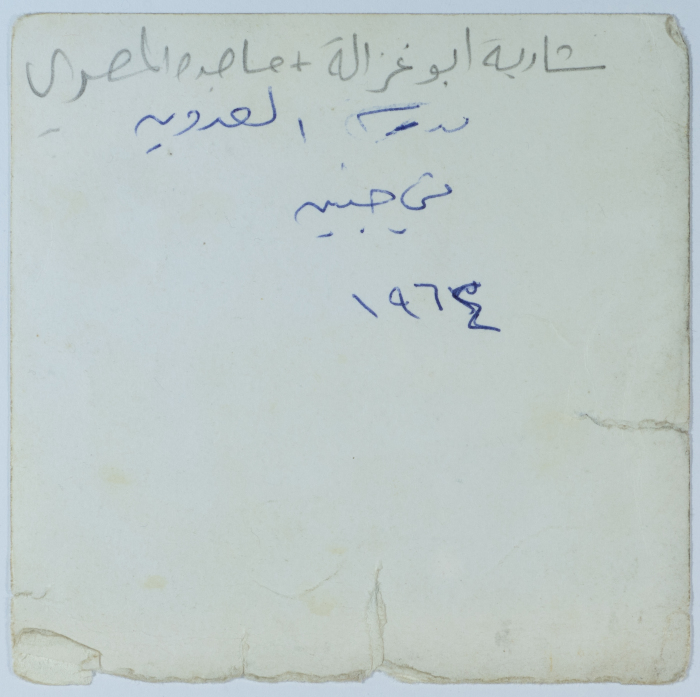 شادية أبو غزالة + ماجدة المصري
العدوية
في جنين
١٩٦٤